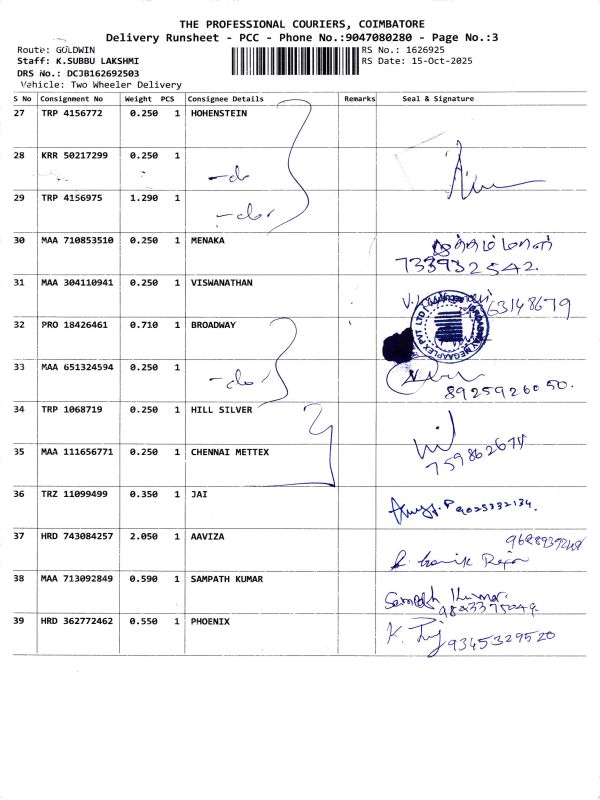 THE PROFESSIONAL COURIERS, COIMBATORE
Delivery Runsheet - PCC - Phone No.:9047080280 - Page No.:3
Route: GOLDWIN RS No.: 1626925
Staff: K.SUBBU LAKSHMI RS Date: 15-Oct-2025
DRS No.: DCJB162692503
Vehicle: Two Wheeler Delivery
S No Consignment No Weight PCS Consignee Details Remarks Seal & Signature
27 TRP 4156772 0.250 1 HOHENSTEIN
28 KRR 50217299 0.250 1 -do-
29 TRP 4156975 1.290 1 -do-
30 MAA 710853510 0.250 1 MENAKA
7339932542.
31 MAA 304110941 0.250 1 VISWANATHAN
63148679
32 PRO 18426461 0.710 1 BROADWAY
BROADWAY MEGAAPLEX PVT LTD
33 MAA 651324594 0.250 1 -do-
8925926050.
34 TRP 1068719 0.250 1 HILL SILVER
35 MAA 111656771 0.250 1 CHENNAI METTEX
36 TRZ 11099499 0.350 1 JAI
9025332134.
37 HRD 743084257 2.050 1 AAVIZA
38 MAA 713092849 0.590 1 SAMPATH KUMAR
Sampath Kumar
39 HRD 362772462 0.550 1 PHOENIX
9345329520